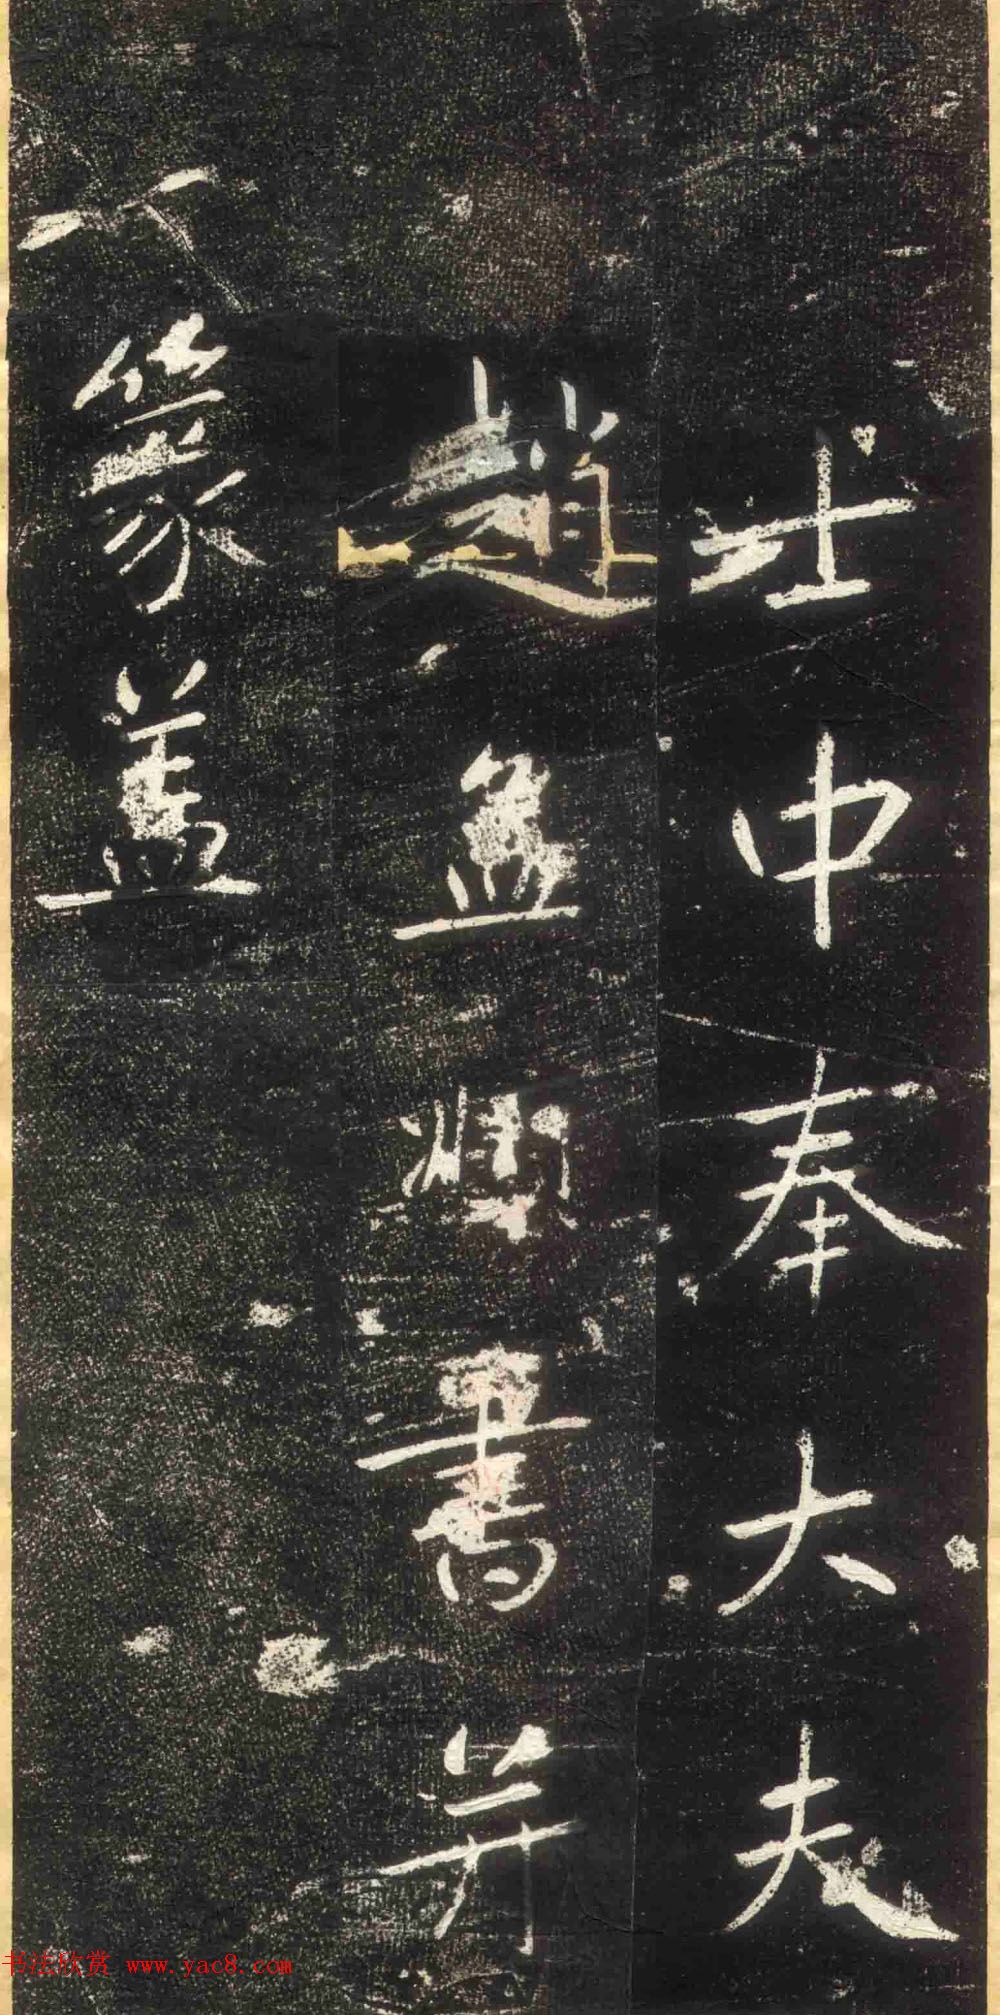 士中奉大夫
趙孟頫書并
篆蓋
书法欣赏 www.yac8.com